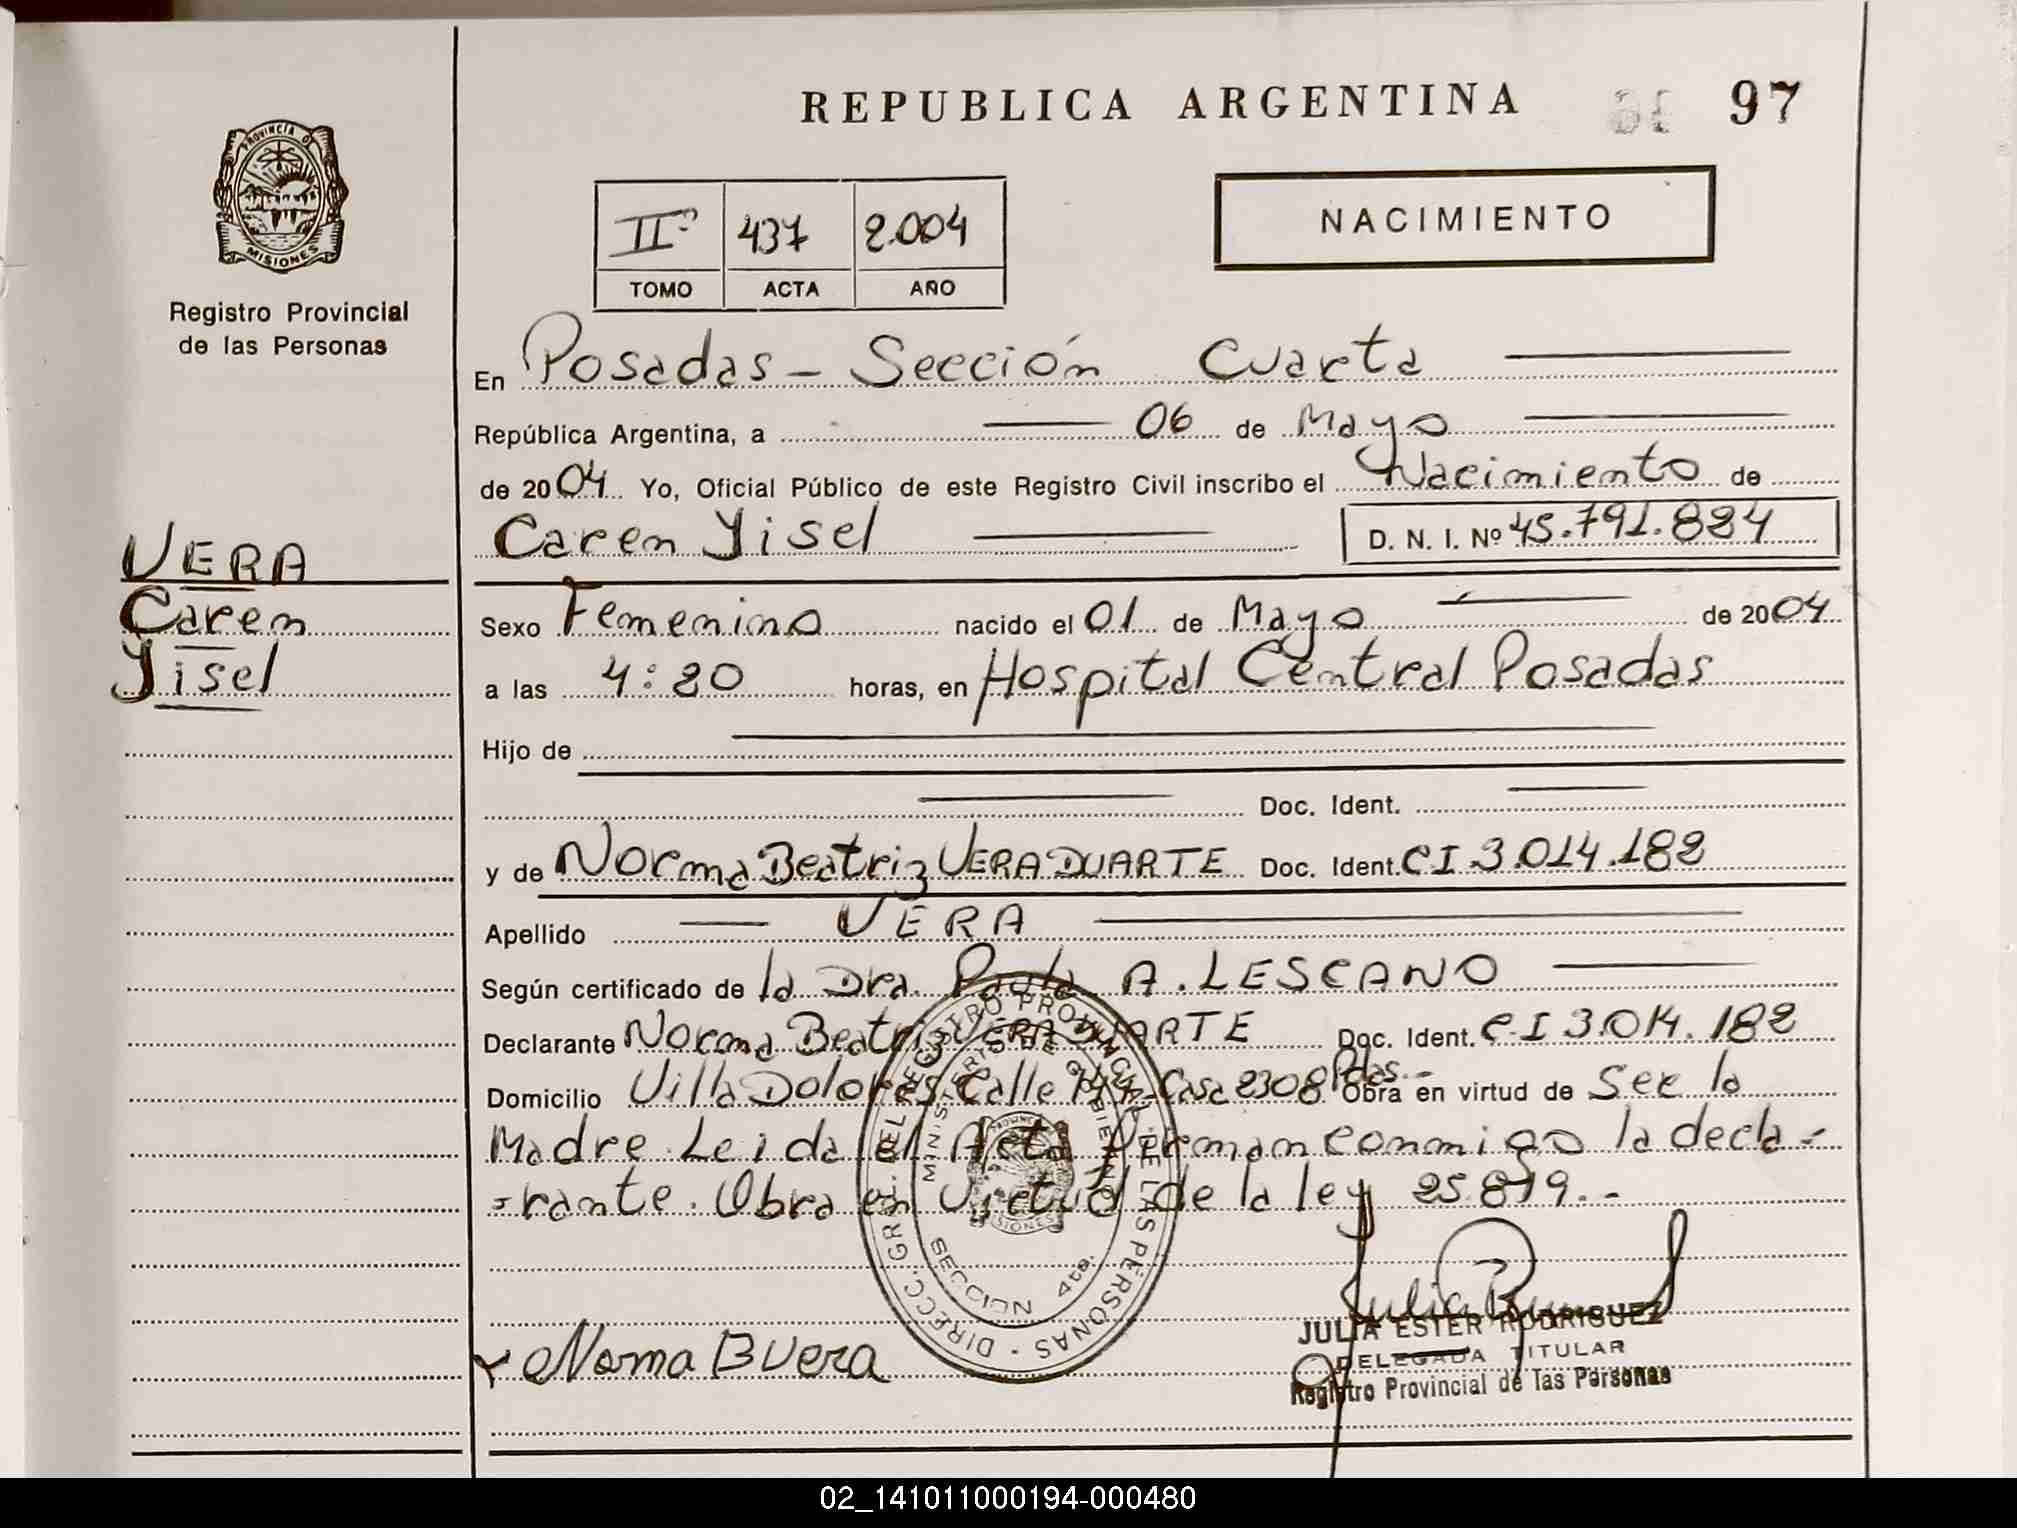 REPUBLICA ARGENTINA 97
PROVINCIA DE
MISIONES
Registro Provincial
de las Personas
IIº 437 2.004
TOMO ACTA AÑO
NACIMIENTO
En Posadas - Sección Cuarta
República Argentina, a 06 de Mayo
de 2004 Yo, Oficial Público de este Registro Civil inscribo el Nacimiento de
Caren Yisel D. N. I. Nº 45.791.884
VERA
Caren
Yisel
Sexo Femenino nacido el 01 de Mayo de 2004
a las 4:20 horas, en Hospital Central Posadas
Hijo de
Doc. Ident.
y de Norma Beatriz VERA DUARTE Doc. Ident. CI 3.014.182
Apellido VERA
Según certificado de la Dra. Paula A. LESCANO
Declarante Norma Beatriz VERA DUARTE Doc. Ident. C.I 3.014.182
Domicilio Villa Dolores Calle 144 Casa 2308 Pdas.- Obra en virtud de Ser la
Madre Leida el Acta Firman conmigo la decla-
-rante. Obra en Virtud de la ley 25.819.-
DIRECC. GRAL. DEL REGISTRO PROVINCIAL DE LAS PERSONAS
MINISTERIO DE GOBIERNO
SECCION 4ta.
Norma B Vera
JULIA ESTER RODRIGUEZ
DELEGADA TITULAR
Registro Provincial de las Personas
02_141011000194-000480